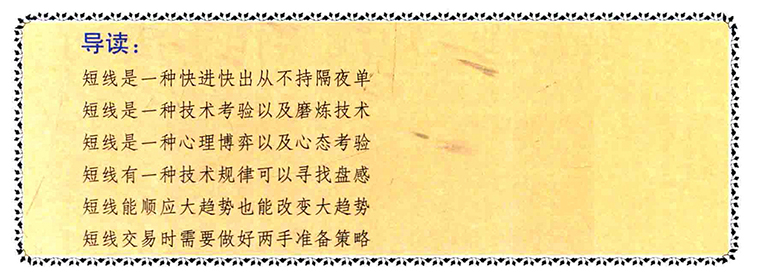 导读：
短线是一种快进快出从不持隔夜单
短线是一种技术考验以及磨炼技术
短线是一种心理博弈以及心态考验
短线有一种技术规律可以寻找盘感
短线能顺应大趋势也能改变大趋势
短线交易时需要做好两手准备策略